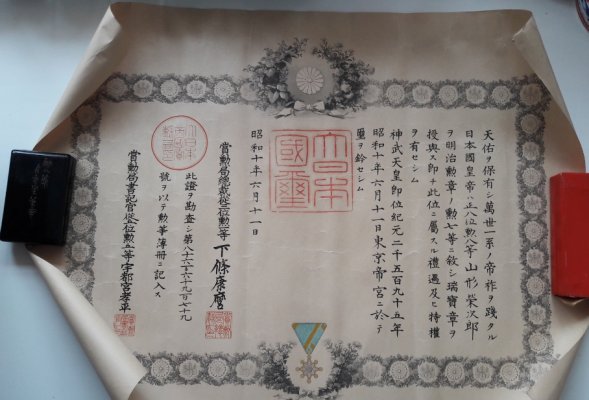 天佑ヲ保有シ萬世一系ノ帝祚ヲ踐タル
日本國皇帝ハ正八位勲八等山形榮次郎
ヲ明治勲章ノ勲七等ニ敘シ瑞寶章ヲ
授與ス即チ此位ニ屬スル禮遇及ヒ特權
ヲ有セシム
神武天皇即位紀元二千五百九十五年
昭和十年六月十一日東京帝宮ニ於テ
璽ヲ鈐セシム
大日本
國璽
昭和十年六月十一日
賞勲局總裁從三位勲二等下條康麿
此證ヲ勘査シ第八十六万六千九百七十九
號ヲ以テ勲等簿冊ニ記入ス
賞勲局書記官從五位勲五等宇都宮孝平